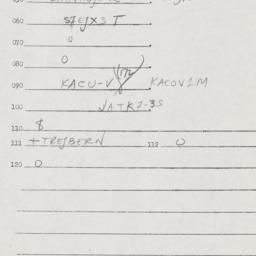 060 S7EJX3 T
070 0
080 0
090 KACU-V KACOV1M
100 JATK7-3S
110 $
111 +TREJBERN 112 0
120 0